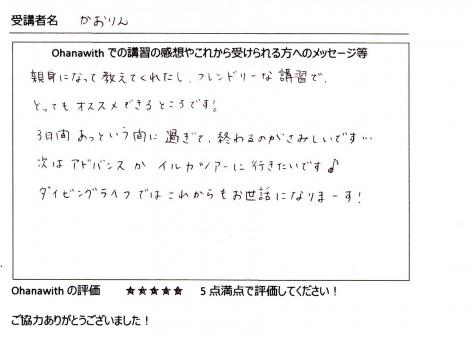 受講者名 かおりん
Ohanawith での講習の感想やこれから受けられる方へのメッセージ等
親身になって教えてくれたし、フレンドリーな講習で、
とってもオススメできるところです!
3日間あっという間に過ぎて、終わるのがさみしいです…
次はアドバンスかイルカツアーに行きたいです♪
ダイビングライフではこれからもお世話になりまーす!
Ohanawith の評価 ★★★★★ 5点満点で評価してください!
ご協力ありがとうございました!